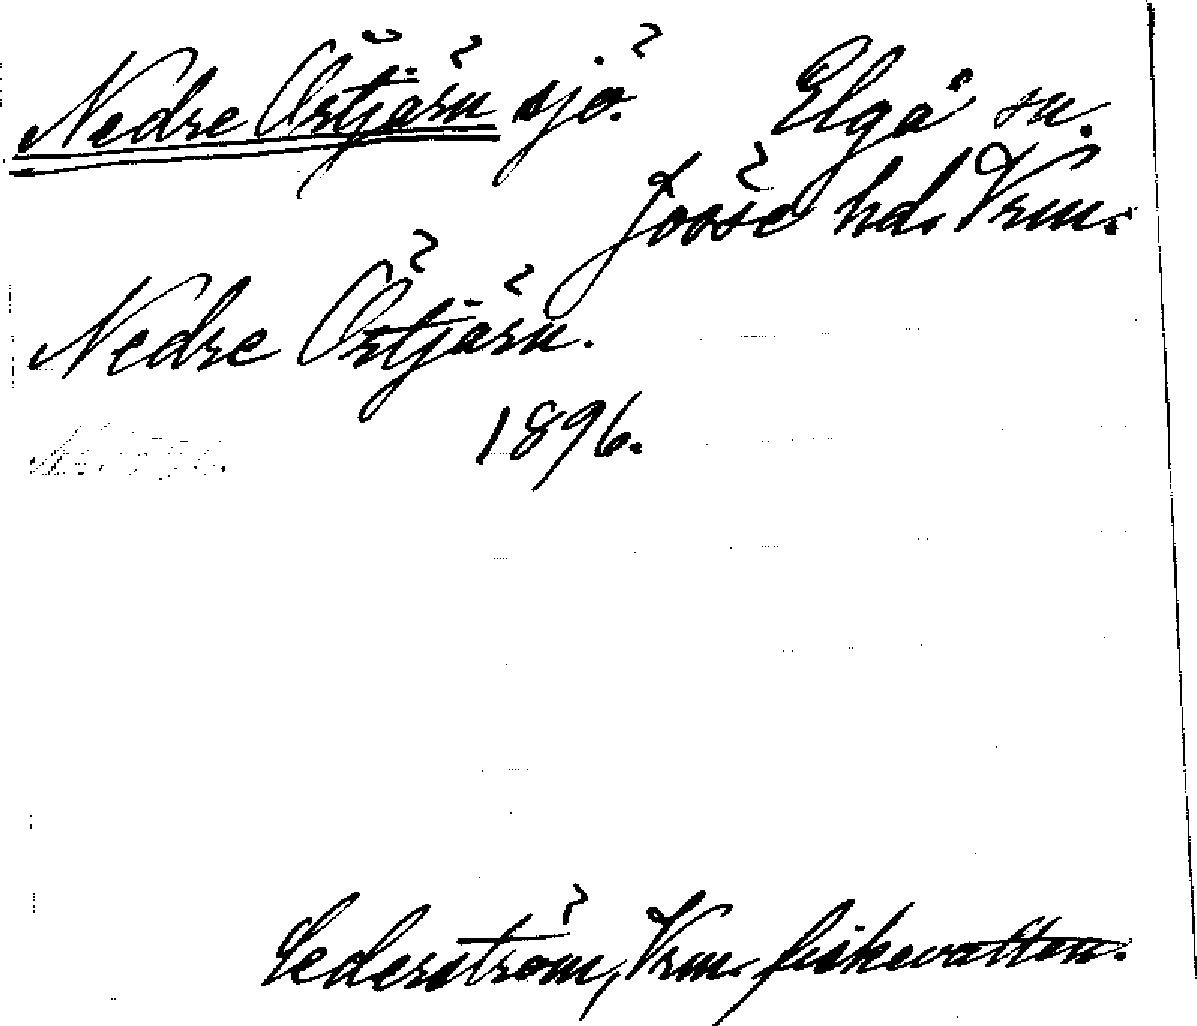 Nedre Örtjärn sjö. Elgå sn.
Jösse hd. Vrm.
Nedre Örtjärn.
1896.
Cederström, Vrm. fiskevatten.